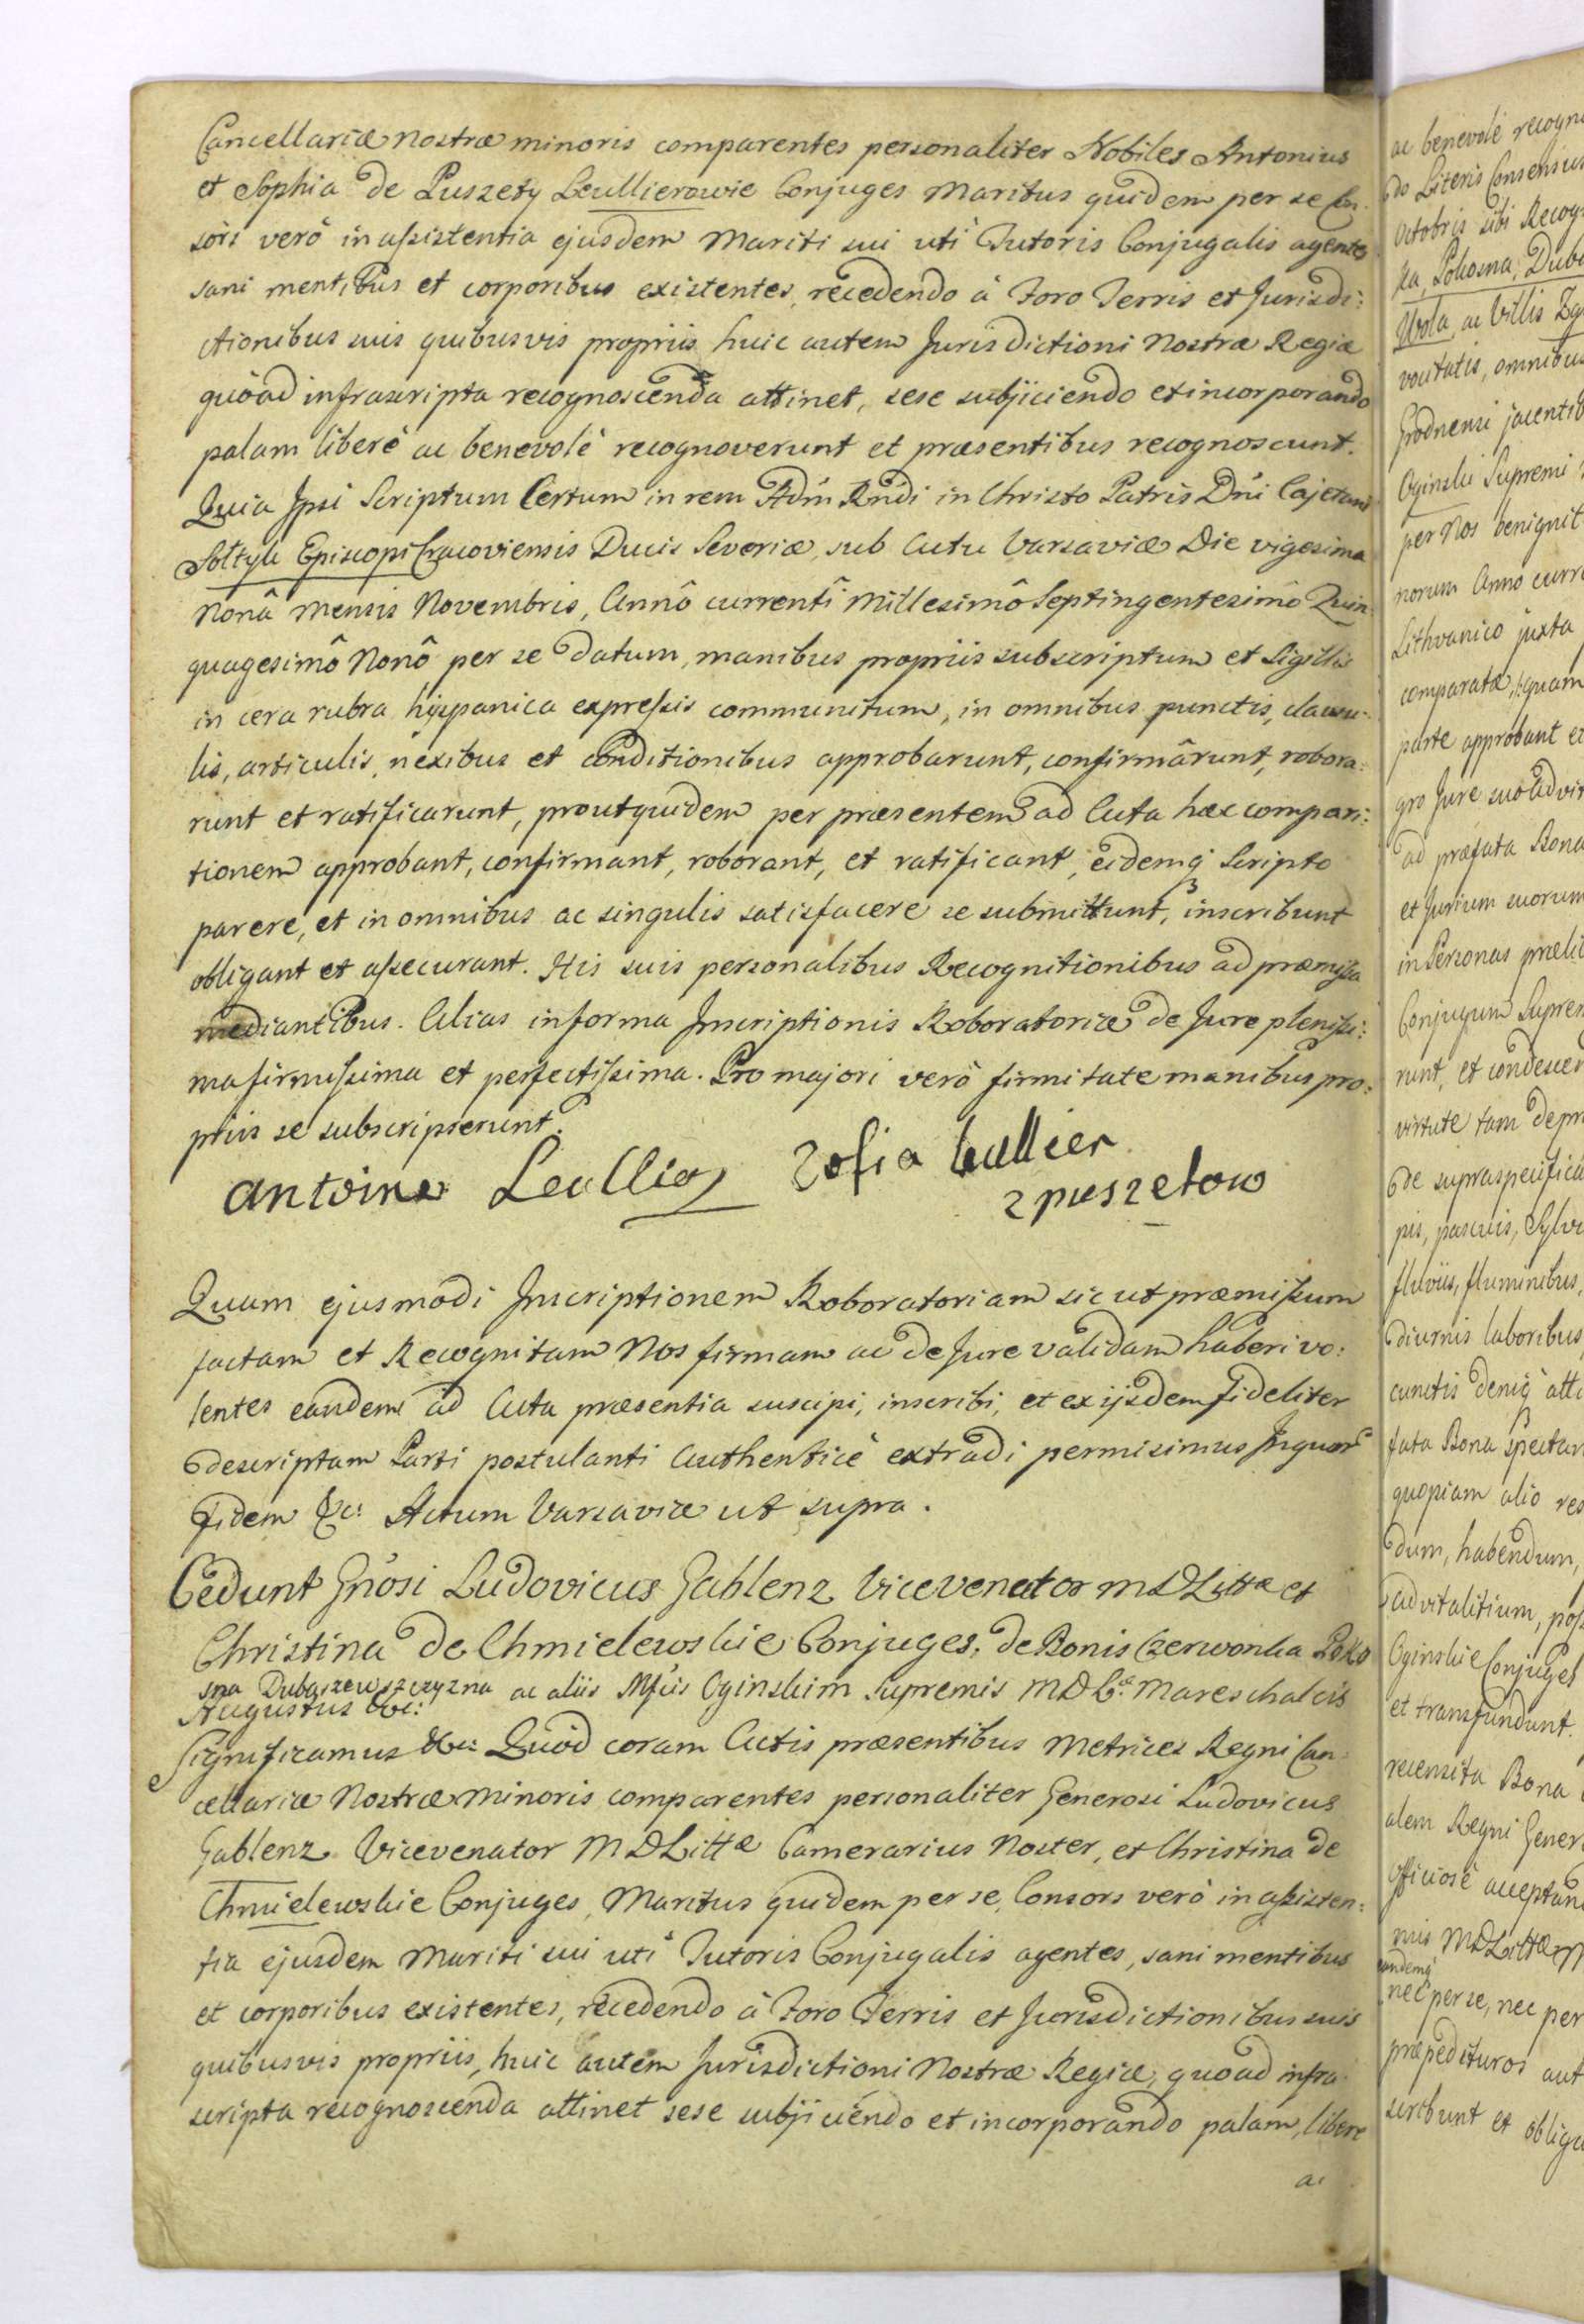 Cancellariæ nostræ minoris comparentes personaliter Nobiles Antonius
et Sophia de Puszety Leullierowie Conjuges Maritus quidem per se Con-
sors verò in assistentia ejusdem Mariti sui uti Tutoris Conjugalis agentes
sani mentibus et corporibus existentes, recedendo à Foro Terris et Jurisdi:
ctionibus suis quibusvis propriis huic autem Jurisdictioni Nostræ Regiæ
quòad infrascripta recognoscenda attinet, sese subjiciendo et incorporando
palam liberè ac benevolè recognoverunt et præsentibus recognoscunt.
Quia Ipsi Scriptum Certum in rem Adm̃ Rndi in Christo Patris Dñi Cajetani
Sołtyk Episcopi Cracoviensis Ducis Severiæ sub Actu Varsaviæ Die vigesima
Nonâ Mensis Novembris, Annô currenti Millesimô Septingentesimô Quin:
quagesimô Nonô per se datum, manibus propriis subscriptum et Sigillis
in cera rubra hyspanica expressis communitum, in omnibus punctis, clausu:
lis, articulis, nexibus et conditionibus approbarunt, confirmârunt, robora:
runt et ratificarunt, prout quidem per præsentem ad Acta hæc compari:
tionem approbant, confirmant, roborant, et ratificant, eidemq̀ Scripto
parere, et in omnibus ac singulis satisfacere se submittunt, inscribunt
obligant et assecurant. His suis personalibus Recognitionibus ad præmissa
mediantibus. Alias in forma Inscriptionis Roboratoriæ de Jure plenissi:
ma firmissima et perfectissima. Pro majori verò firmitate manibus pro:
priis se subscripserunt.
antoine Leullier Zofia Leullier
z puszetow
Quam ejusmodi Inscriptionem Roboratoriam sic ut præmissum
factam et Recognitam Nos firmam ac de Jure validam haberi vo:
lentes eandem ad Acta præsentia suscipi, inscribi, et ex ijsdem fideliter
descriptam Parti postulanti Authenticè extradi permisimus In quor̃
fidem &c: Actum Varsaviæ ut supra.
Cedunt Gnosi Ludovicus Gablenz Vicevenator MDLittæ et
Christina de Chmielewskie Conjuges. de Bonis Czerwonka Poko
sna Dubaszewszczyzna ac aliis Mſcis Oginskim Supremis MDL Mareschalcis
Augustus &c:
Significamus &c: Quòd coram Actis præsentibus Metrices Regni Can:
cellariæ Nostræ Minoris comparentes personaliter Generosi Ludovicus
Gablenz Vicevenator MDLittæ Camerarius Noster, et Christina de
Chmielewskie Conjuges, Maritus quidem per se, Consors verò in assisten:
tia ejusdem Mariti sui uti Tutoris Conjugalis agentes, sani mentibus
et corporibus existentes, recedendo à Foro Terris et Jurisdictionibus suis
quibusvis propriis, huic autem Jurisdictioni Nostræ Regiæ, quoad infra
scripta recognoscenda attinet sese subjiciendo et incorporando palam, libere
ac
ac benevolè recogn
do Literis Consensus
Octobris sibi Recog
ka, Pokosna, Duba
Wola, ac Villis
voutatis, omnibus
Grodnensi jacentib
Oginski Supremi
per Nos benignit
norum Anno curre
Lithvanico juxta
comparata, quam
parte approbant et
gro Jure suo advit
ad præfata Bona
et Jurium suorum
in Personas prælic
Conjugum Suprem
runt, et condescen
virtute tam de pr
de supraspecifica
pis, pascuis, Sylvi
fluviis, fluminibus,
diurnis laboribus
cunctis deniq̀ atti
fata Bona spectan
quopiam alio res
dum, habendum,
advitalitium, pos
Oginskie Conjuges
et transfundunt.
recensita Bona
alem Regni Gener
officiosè acceptan
mis MDLittæ M
eandemq̀
nec per se, nec per
præpedituros aut
scribunt et obliga